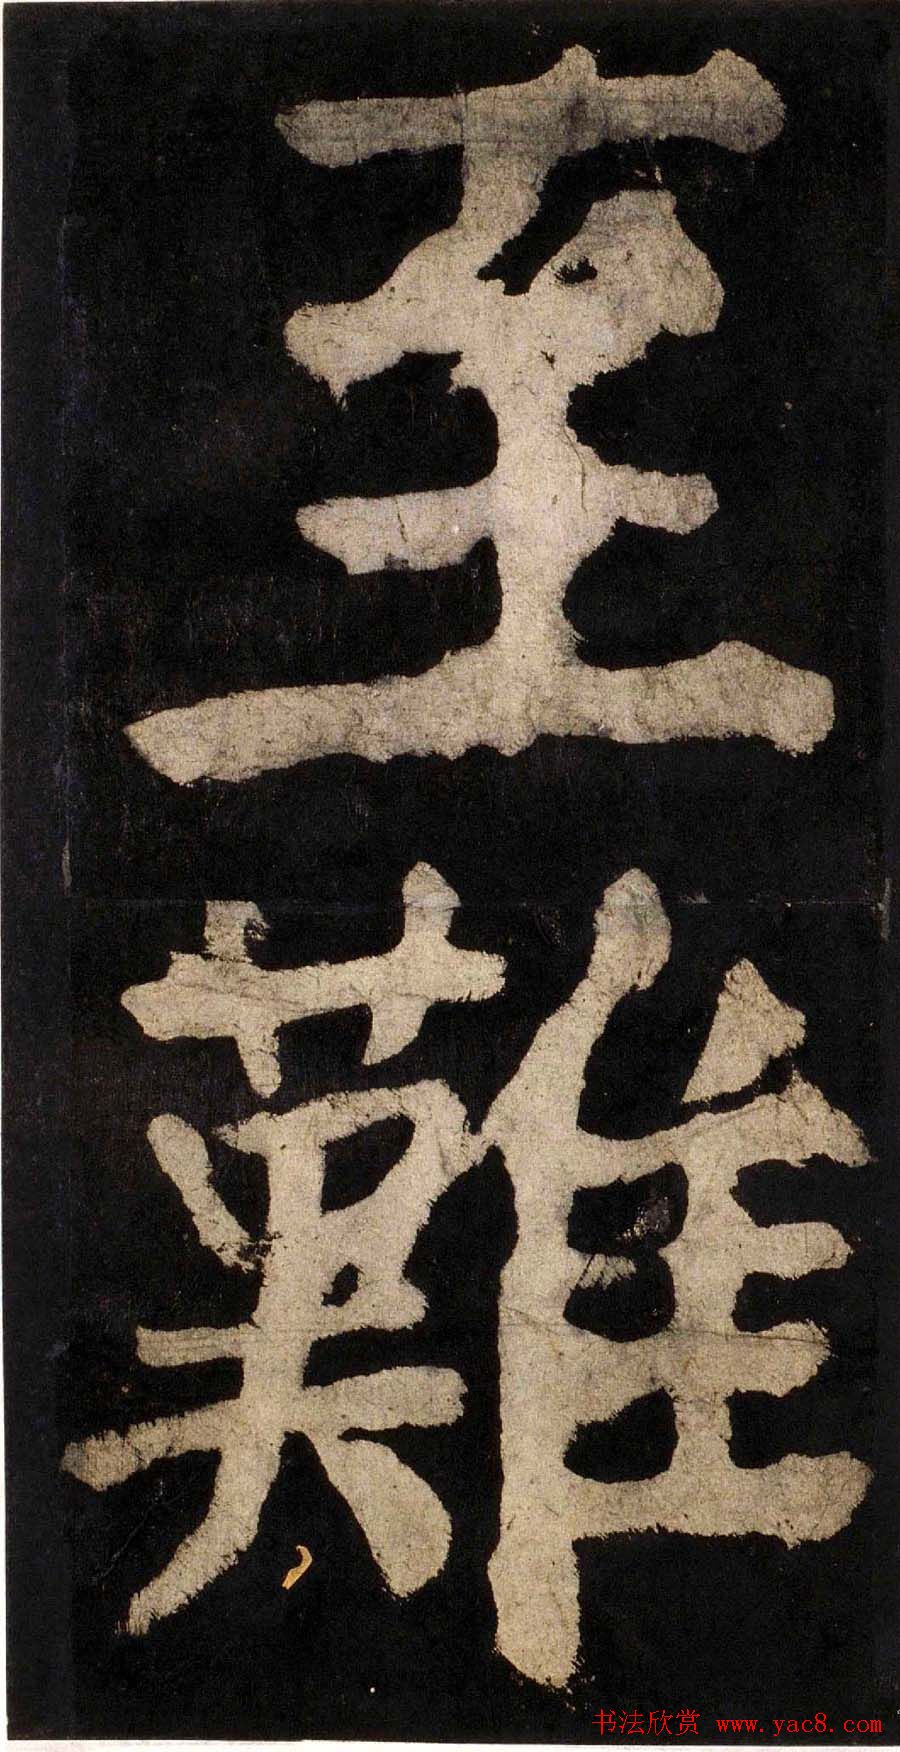 至
難
书法欣赏 www.yac8.com